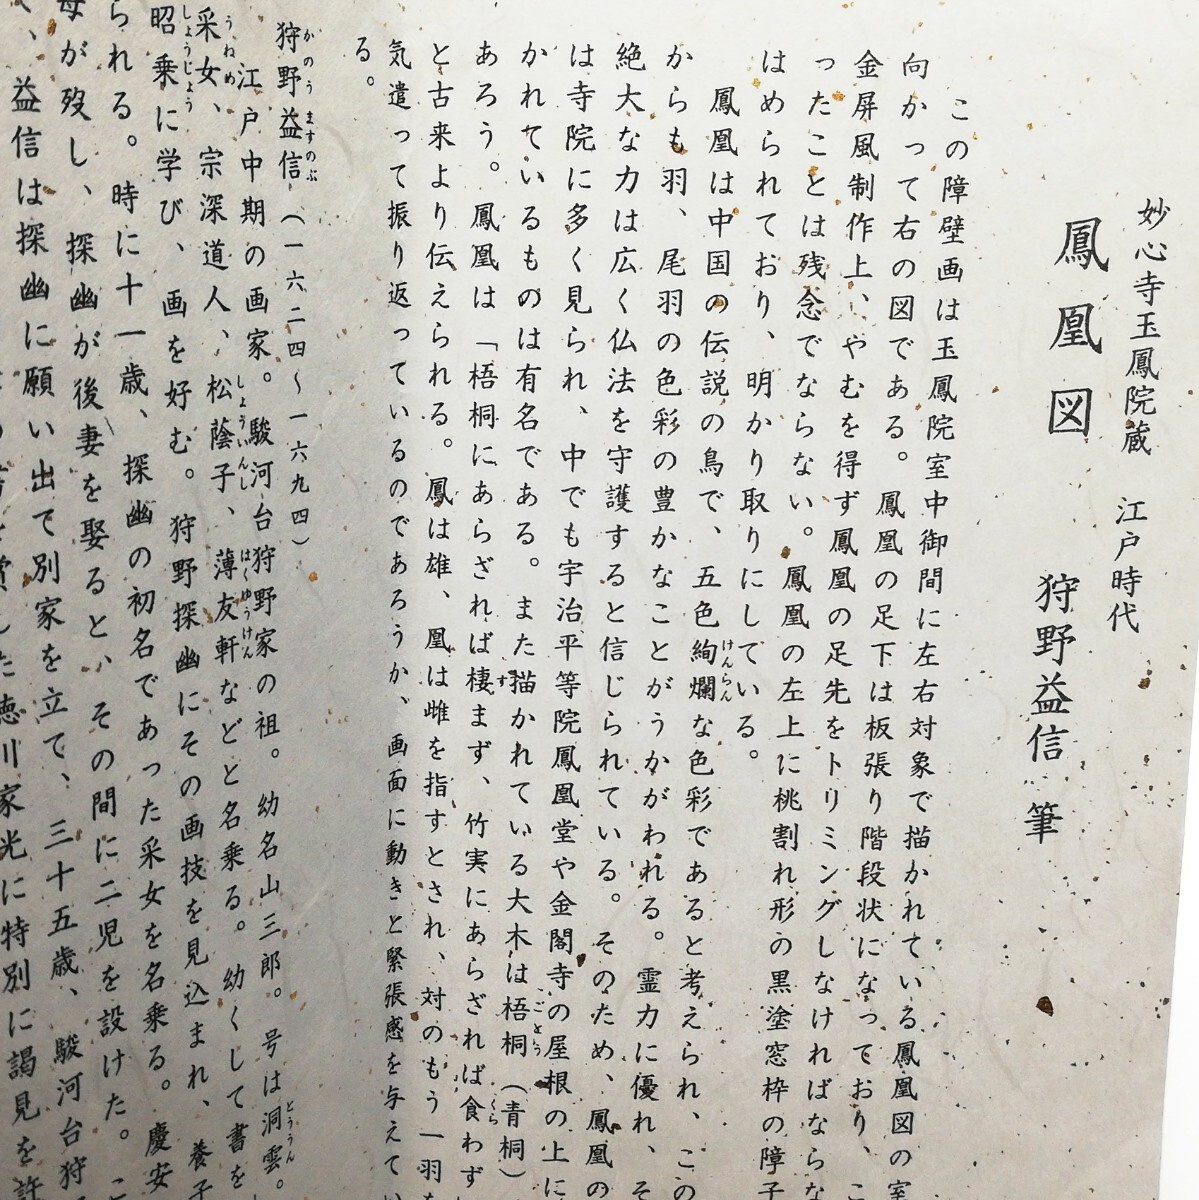 妙心寺玉鳳院蔵　江戸時代
鳳凰図　狩野益信　筆
この障壁画は玉鳳院室中御間に左右対象で描かれている鳳凰図の室
向かって右の図である。鳳凰の足下は板張り階段状になっており、こ
金屏風制作上、やむを得ず鳳凰の足先をトリミングしなければならな
ったことは残念でならない。鳳凰の左上に桃割れ形の黒塗窓枠の障子
はめられており、明かり取りにしている。
鳳凰は中国の伝説の鳥で、五色絢爛な色彩であると考えられ、この
けんらん
からも羽、尾羽の色彩の豊かなことがうかがわれる。霊力に優れ、そ
絶大な力は広く仏法を守護すると信じられている。そのため、鳳凰の
は寺院に多く見られ、中でも宇治平等院鳳凰堂や金閣寺の屋根の上に
かれているものは有名である。また描かれている大木は梧桐（青桐）
ごとう
あろう。鳳凰は「梧桐にあらざれば棲まず、竹実にあらざれば食わず
す
くら
と古来より伝えられる。鳳は雄、凰は雌を指すとされ、対のもう一羽を
気遣って振り返っているのであろうか、画面に動きと緊張感を与えてい
る。
狩野益信（一六二四～一六九四）
かのう ますのぶ
江戸中期の画家。駿河台狩野家の祖。幼名山三郎。号は洞雲。
とううん
采女、宗深道人、松蔭子、薄友軒などと名乗る。幼くして書を
うねめ
しょういんし
はくゆうけん
昭乗に学び、画を好む。狩野探幽にその画技を見込まれ、養子
しょうじょう
られる。時に十一歳、探幽の初名であった采女を名乗る。慶安
母が歿し、探幽が後妻を娶ると、その間に二児を設けた。こ
、益信は探幽に願い出て別家を立て、三十五歳、駿河台狩
徳川家光に特別に謁見を許